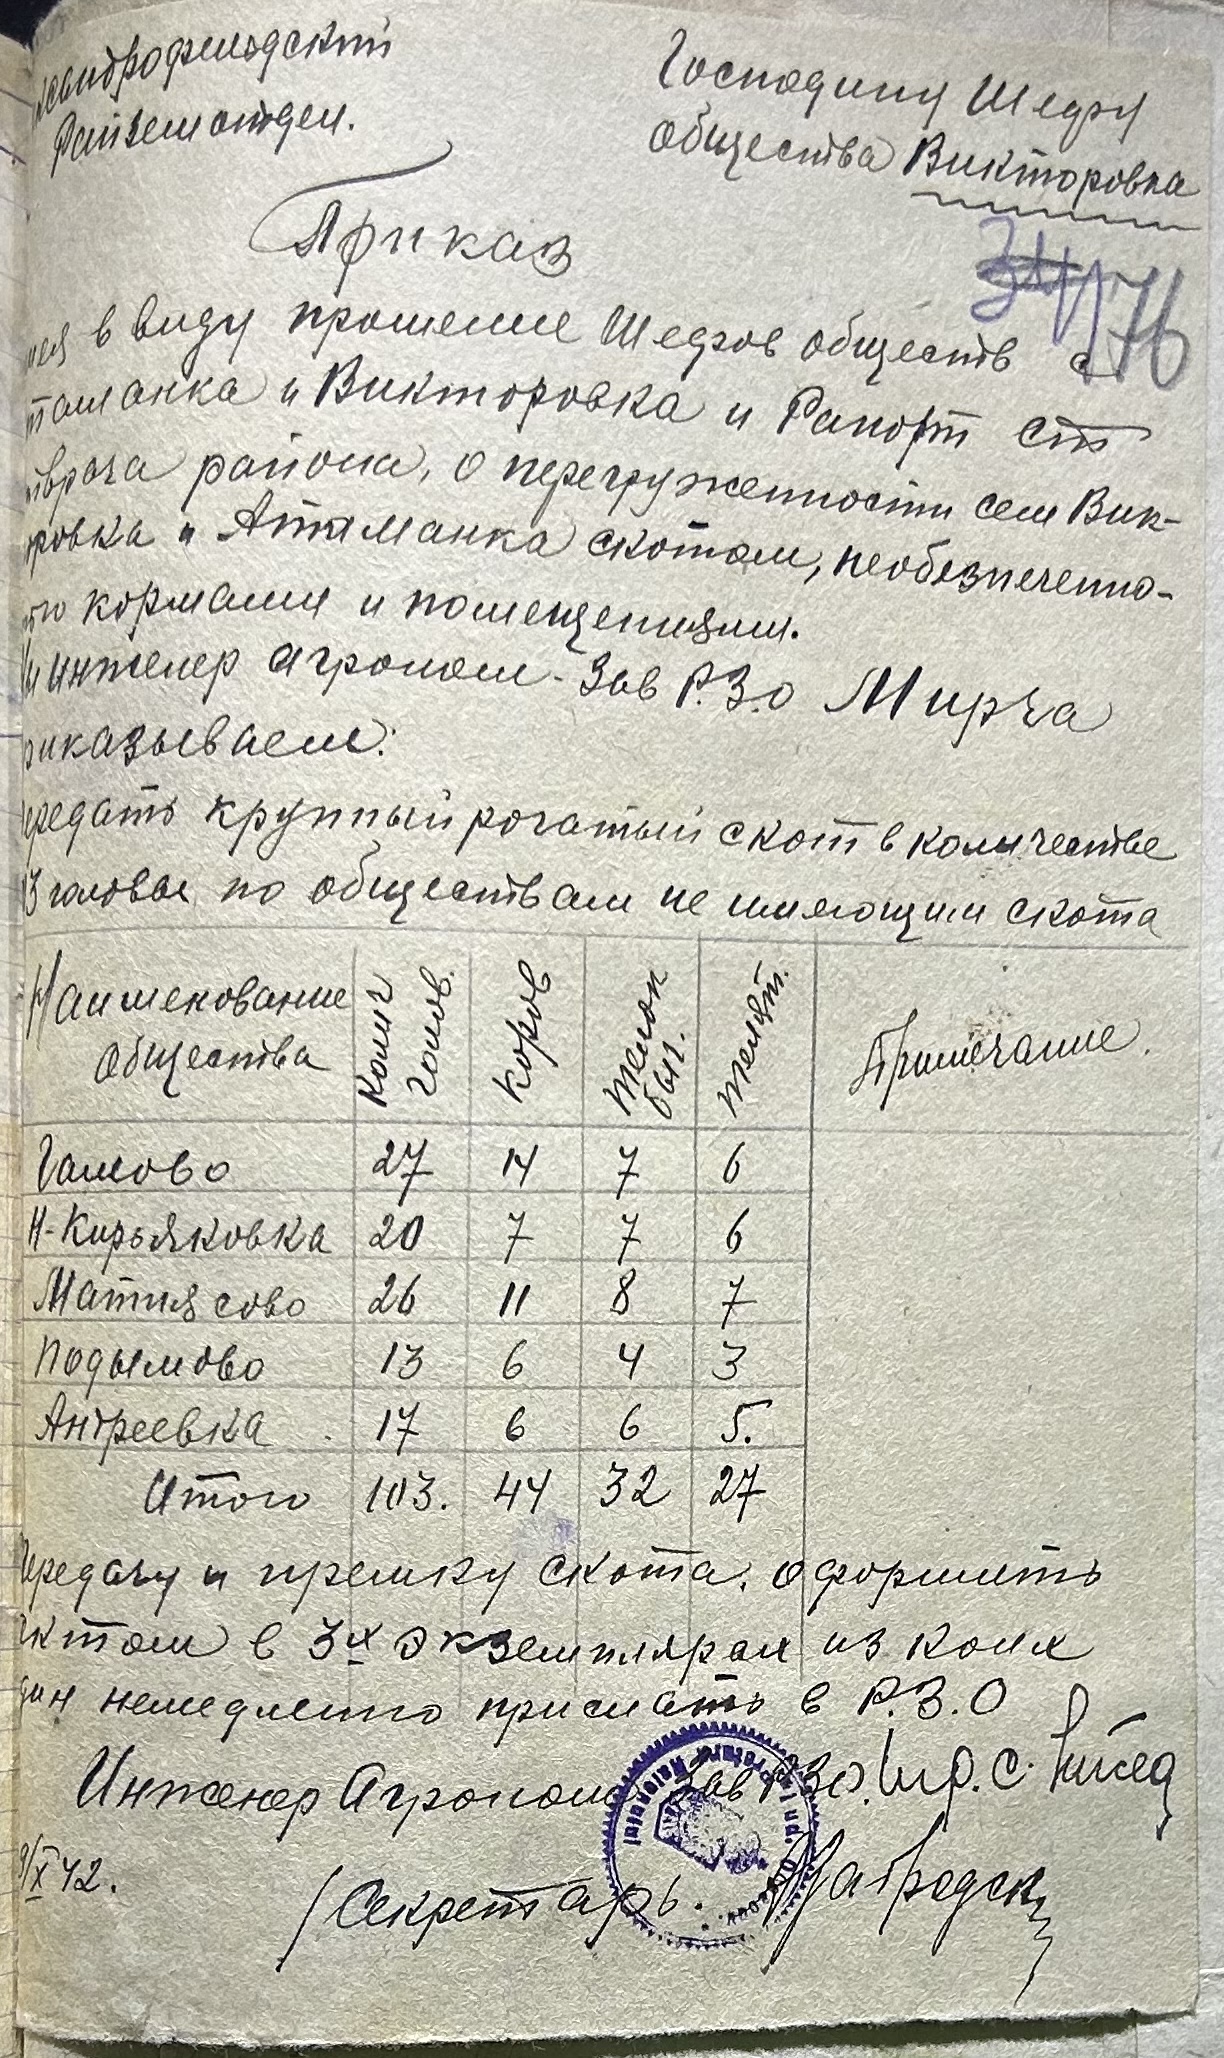 ксандрофельдский
Райземотдел.
Господину Шефу
общества Викторовка
Приказ
34 176
мея в виду прошение Шефов обществ с
таманка и Викторовка и Рапорт ст
тврача района, о перегруженности сел Вик-
ровка и Атаманка скотом, необезпеченно-
тю кормами и помещениями.
инженер агроном - Зав Р.З.о Мирча
риказываем:
ередать крупный рогатый скот в количестве
03 головы по обществам не имеющим скота
Наименование общества Колич голов. Коров телок быч. телят. Примечание.
Гамово 27 14 7 6
Н-Кирьяковка 20 7 7 6
Матиясово 26 11 8 7
Подымово 13 6 4 3
Андреевка 17 6 6 5.
Итого 103. 44 32 27
Передачу и премку скота. оформить
актом в 3х экземплярах из коих
дин немедленно прислать в Р.З.О
Инженер Агроном Зав РЗо.
9/X 42.
Секретарь.